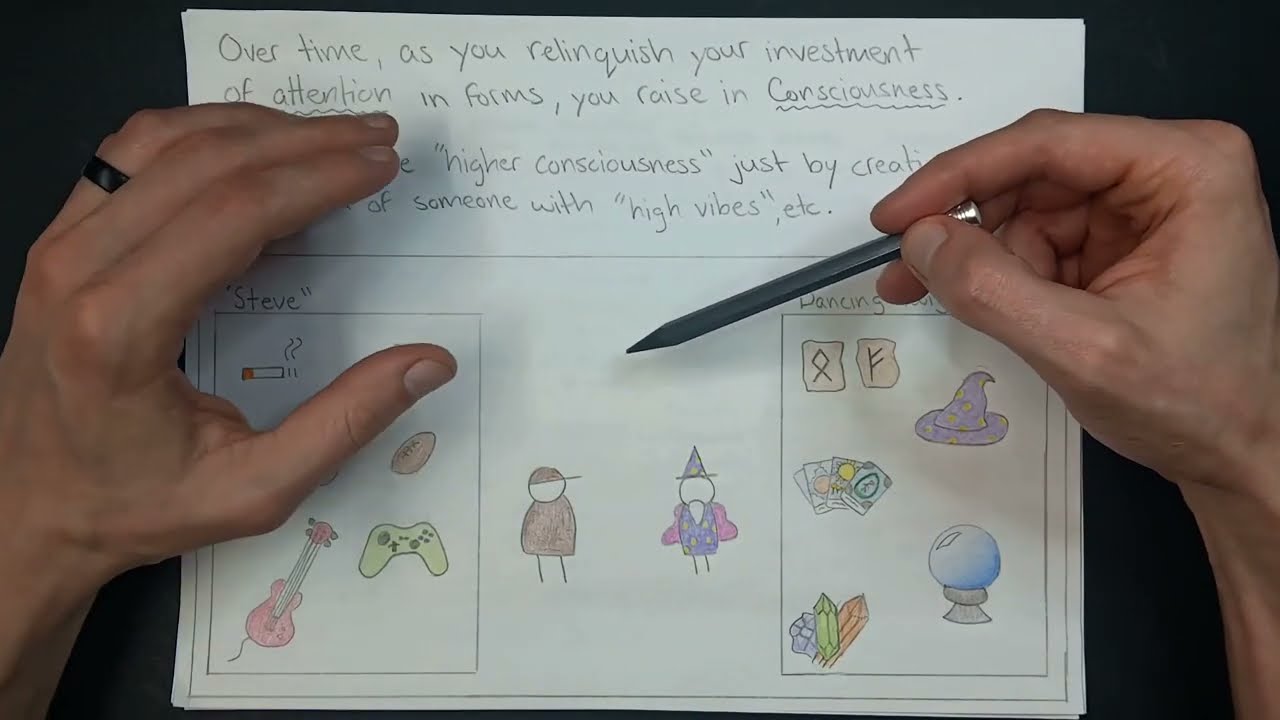 Over time, as you relinquish your investment
of attention in forms, you raise in Consciousness.
"higher consciousness" just by
of someone with "high vibes", etc.
"Steve"
Dancing